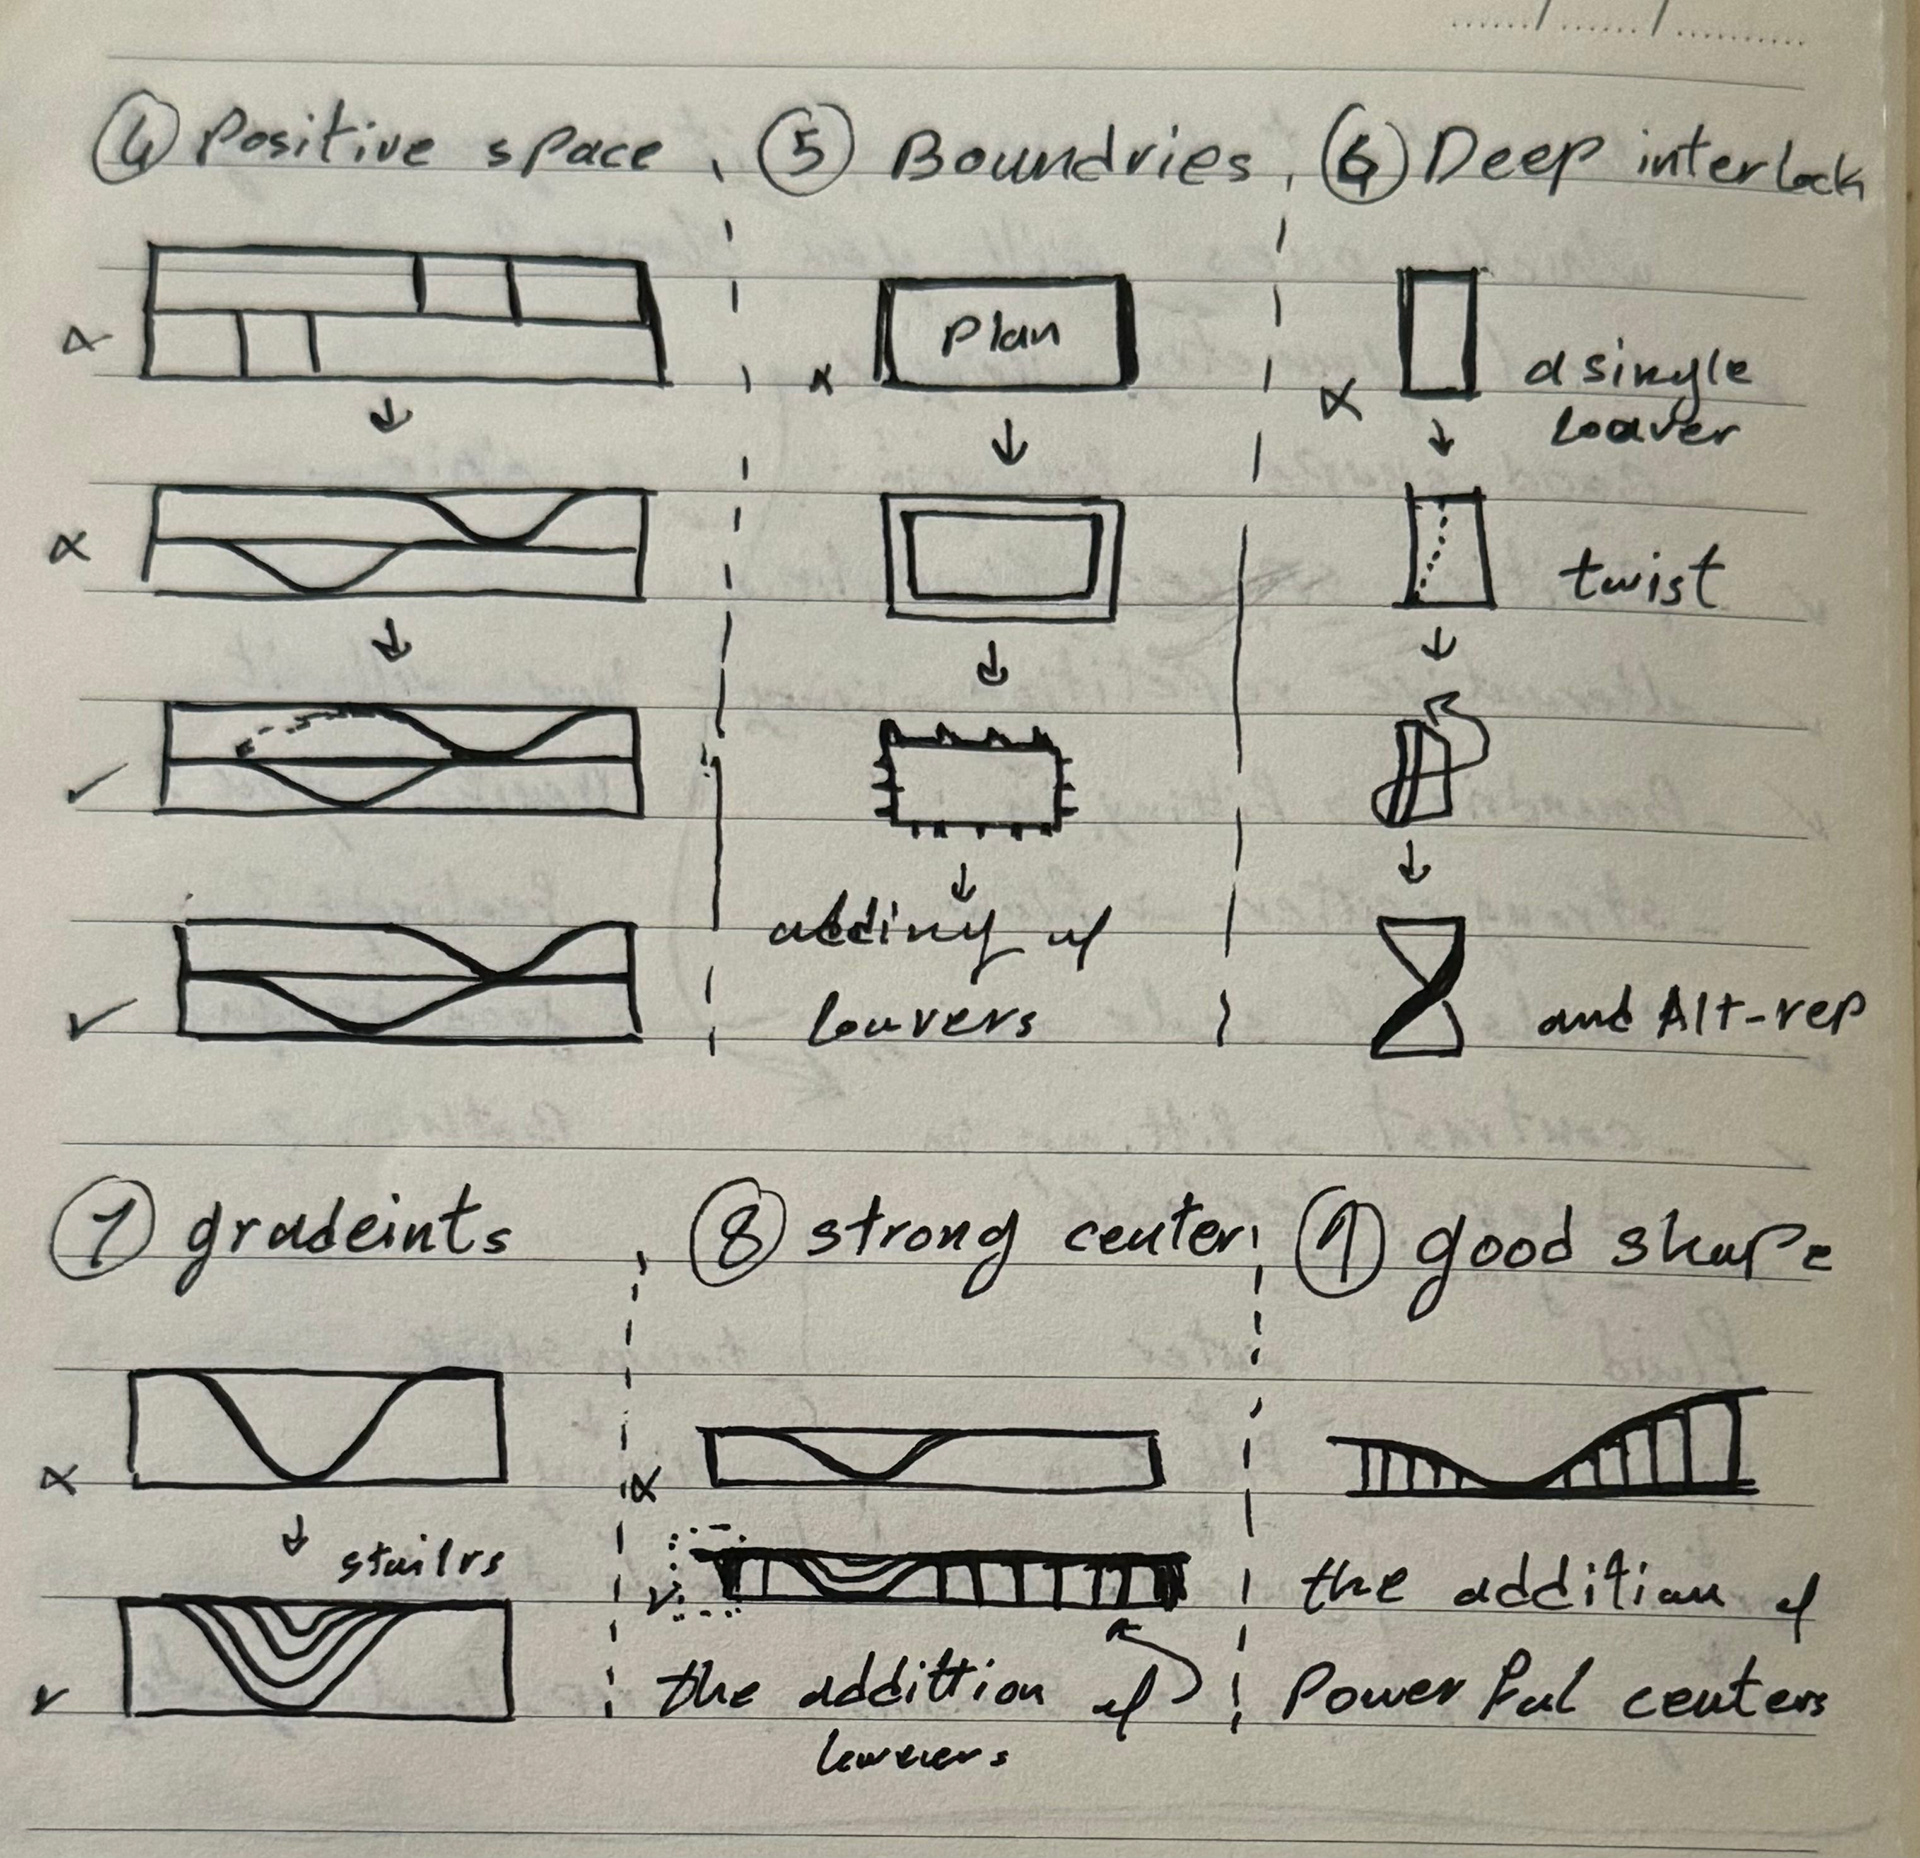 ④ Positive space
⑤ Boundries
⑥ Deep interlock
Plan
a single
loaver
twist
adding of
louvers
and Alt-rep
⑦ gradeints
⑧ strong center
⑨ good shape
stailrs
the addittion of
the addition of
Powerful centers